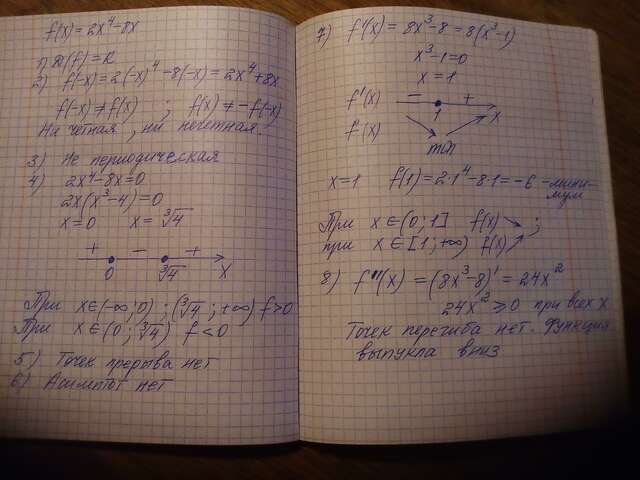 f(x)=2x⁴-8x
1) D(f)=R
2) f(-x)=2(-x)⁴-8(-x)=2x⁴+8x
f(-x)≠f(x) ; f(x)≠-f(-x)
Ни четная, ни нечетная.
3) Не периодическая
4) 2x⁴-8x=0
2x(x³-4)=0
x=0 x=∛4
+ - +
0 ∛4 x
При x∈(-∞;0) ; (∛4 ; +∞) f>0
При x∈(0; ∛4) f<0
5) Точек прерыва нет
6) Асимптот нет
7) f'(x)=8x³-8=8(x³-1)
x³-1=0
x=1
f'(x) - +
1 x
f(x)
min
x=1 f(1)=2·1⁴-8·1=-6 -мини-
мум
При x∈(0;1] f(x)↘ ;
при x∈[1;+∞) f(x)↗
8) f''(x)=(8x³-8)'=24x²
24x²≥0 при всех x
Точек перегиба нет. Функция
выпукла вниз